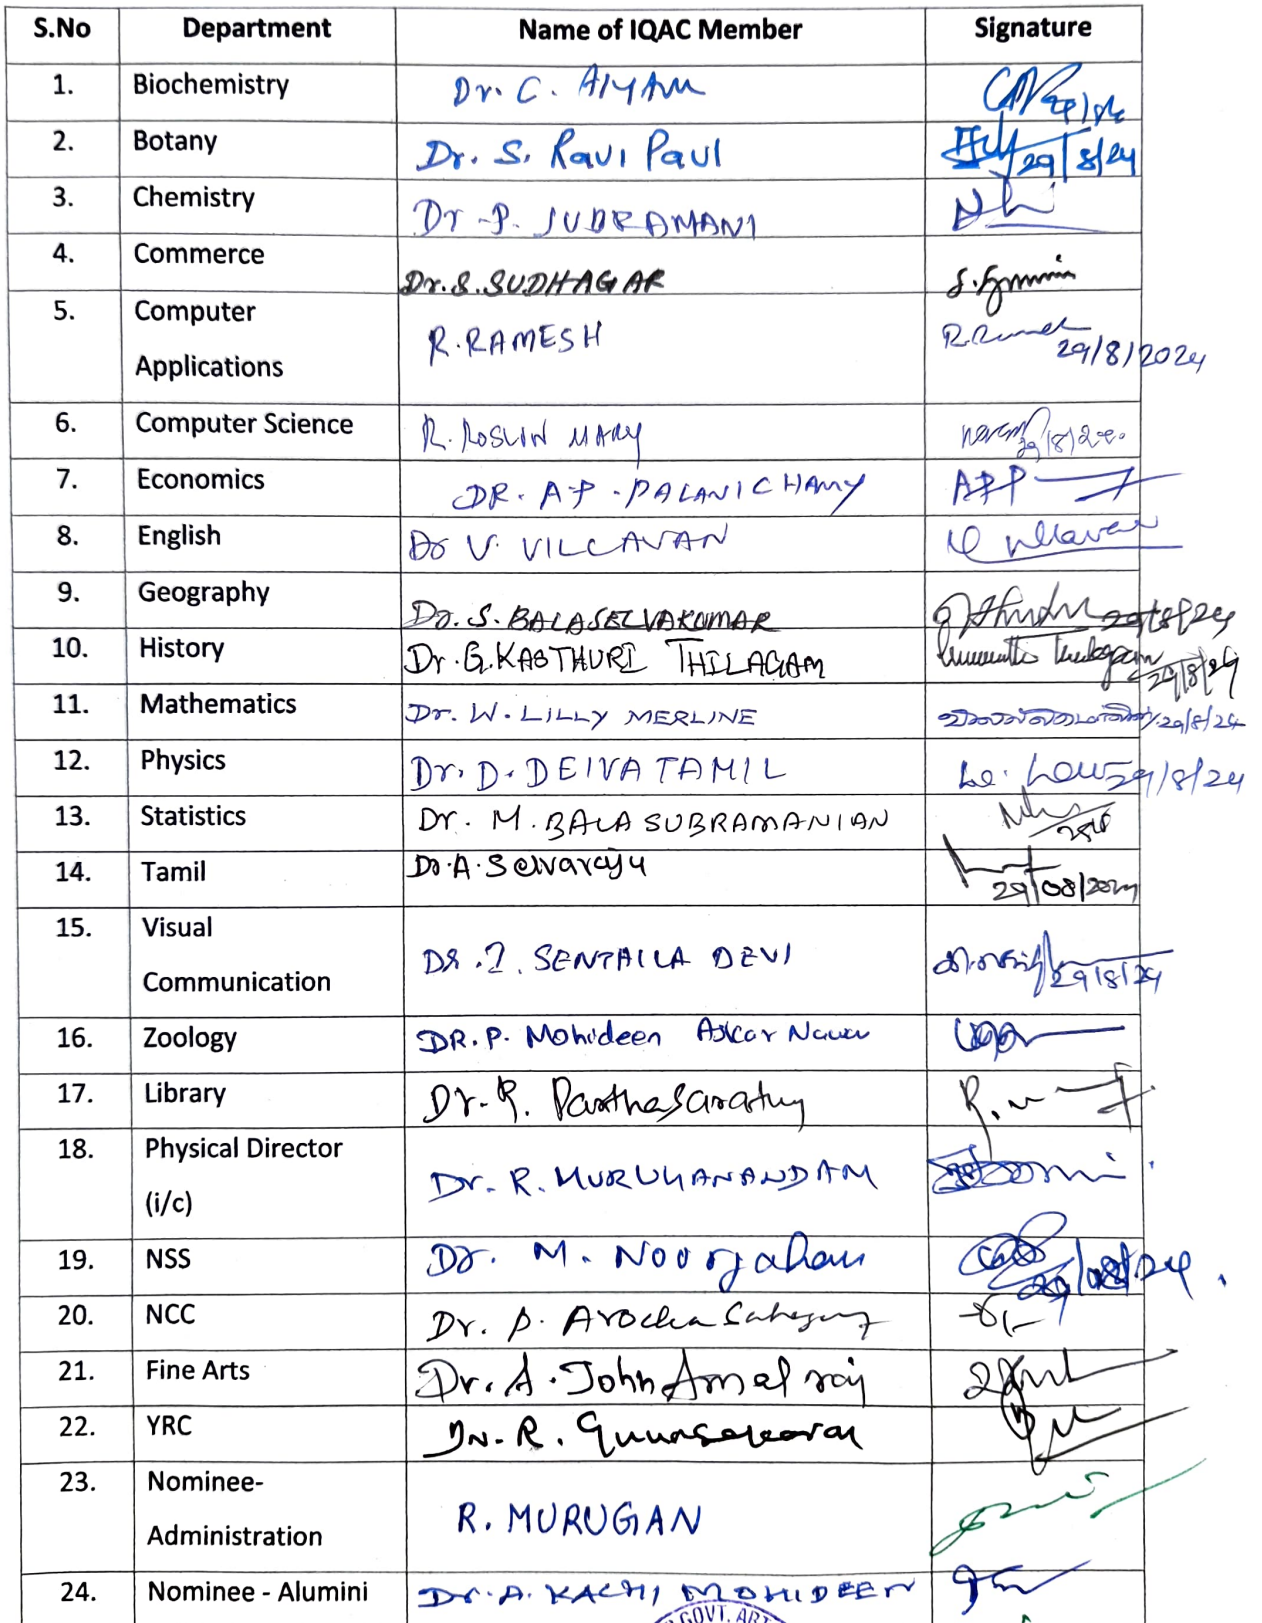 S.No Department Name of IQAC Member Signature
1. Biochemistry Dr. C. AIYAM
2. Botany Dr. S. Ravi Paul 29/8/24
3. Chemistry Dr P.
4. Commerce Dr.S.SUDHAGAR
5. Computer R.RAMESH
Applications 29/8/2024
6. Computer Science R. ROSLIN MARY 29/8/
7. Economics DR. A.P. PALANICHAMY APP
8. English Dr V. VILLAVAN
9. Geography Dr. S. BALASELVAKUMAR 29/8/24
10. History Dr. G.KASTHURI THILAGAM 29/8/24
11. Mathematics Dr. W. LILLY MERLINE 29/8/24
12. Physics Dr. D. DEIVATAMIL 29/8/24
13. Statistics Dr. M. BALASUBRAMANIAN
14. Tamil Dr. A. Selvaraju 29/08/2024
15. Visual Dr. SENTHILA DEVI
Communication 29/8/24
16. Zoology DR. P. Mohideen Askar
17. Library Dr. R. Parthasarathy
18. Physical Director Dr. R. MURUGANANDAM
(i/c)
19. NSS Dr. M. Noorjahan 29/08/24
20. NCC Dr.
21. Fine Arts Dr. A. John Amalraj
22. YRC Dr. R. Gunasekaran
23. Nominee- R. MURUGAN
Administration
24. Nominee - Alumini Dr. A. KACHI MOHIDEEN
GOVT. ART